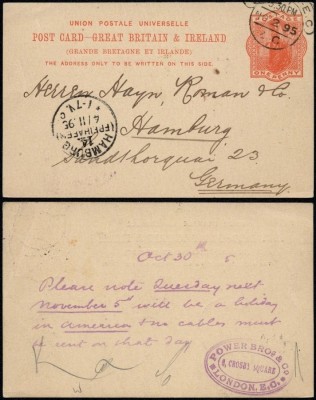 UNION POSTALE UNIVERSELLE
POST CARD-GREAT BRITAIN & IRELAND
(GRANDE BRETAGNE ET IRLANDE)
THE ADDRESS ONLY TO BE WRITTEN ON THIS SIDE.
ONE PENNY
Herren Hayn, Roman & Co.
Hamburg
Sandthorquai 23
Germany
HAMBURG
4/11.95
Oct 30th 5
Please note Tuesday next
November 5th will be a holiday
in America & no cables must
be sent on that day
POWER BROS & CO
6, CROSBY SQUARE
LONDON, E.C.